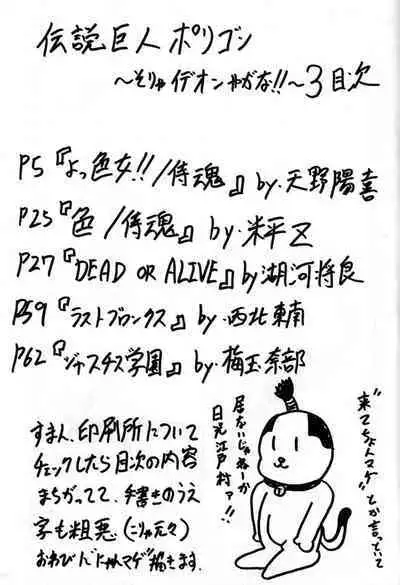 伝説巨人ポリゴン
～そりゃイデオンやがな!!～3目次
P5『よっ色女!!/侍魂』by.天野陽喜
P25『色/侍魂』by.米平Z
P27『DEAD OR ALIVE』by湖河将良
P59『ラストブロンクス』by.西北東南
P62『ジャスチス学園』by.梅玉奈部
すまん、印刷所について
チェックしたら目次の内容
まちがってて、手書きのうえ
字も粗悪（こりゃ元々）
おわびに"にゃんまげ"描きます。
"来てちょんマゲ"とか言っていて
居ないじゃねーか
日光江戸村ァ!!